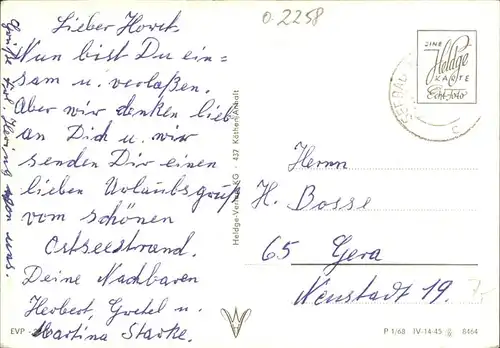 Lieber Horst.
Nun bist Du ein-
sam u. verlaßen.
Aber wir denken lieb
an Dich u. wir
senden Dir einen
lieben Urlaubsgruß
vom schönen
Ostseestrand.
Deine Nachbaren
Herbert, Gretel u.
Martina Starke.
Grüße Frl.
von uns.
0.2258
EINE
Heldge
KARTE
Echt foto
Heldge-Verlag KG · 437 Köthen/Anhalt
Herrn
H. Bosse
65 Gera
Neustadt 19.
EVP
P 1/68 IV-14-45 8464